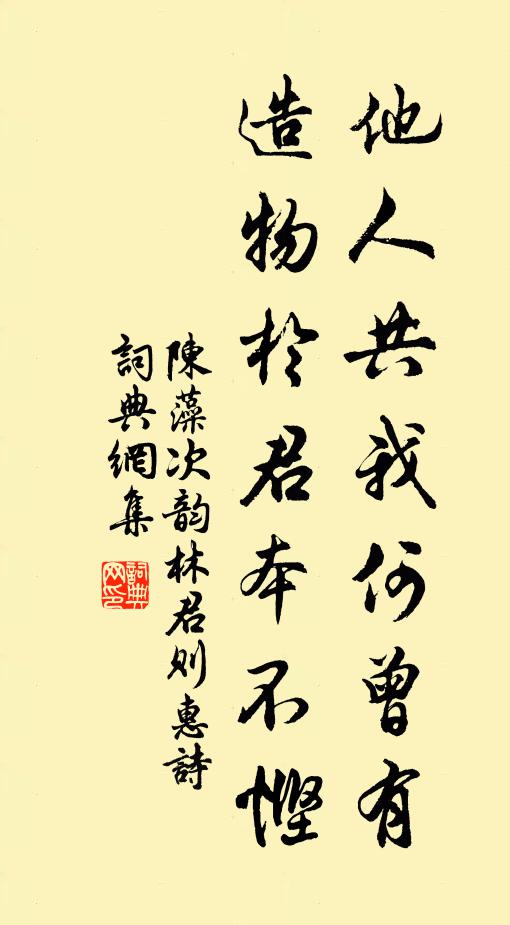 他人共我何曾有
造物於君本不慳
陳藻次韵林君則惠詩
詞典網集
詞典网印